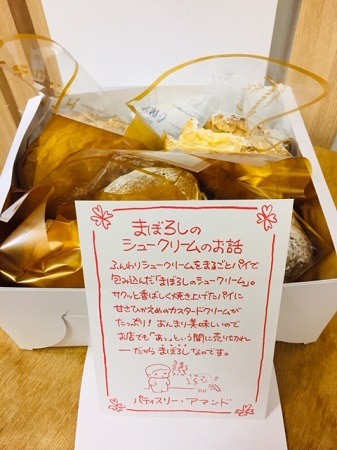 まぼろしの
シュークリームのお話
ふんわりシュークリームをまるごとパイで
包み込んだ「まぼろしのシュークリーム」。
サクッと香ばしく焼き上げたパイに
甘さひかえめのカスタードクリームが
たっぷり！あんまり美味しいので
お店でも「あっ」という間に売り切れ
―だから まぼろしなのです。
パティスリー・アマンド